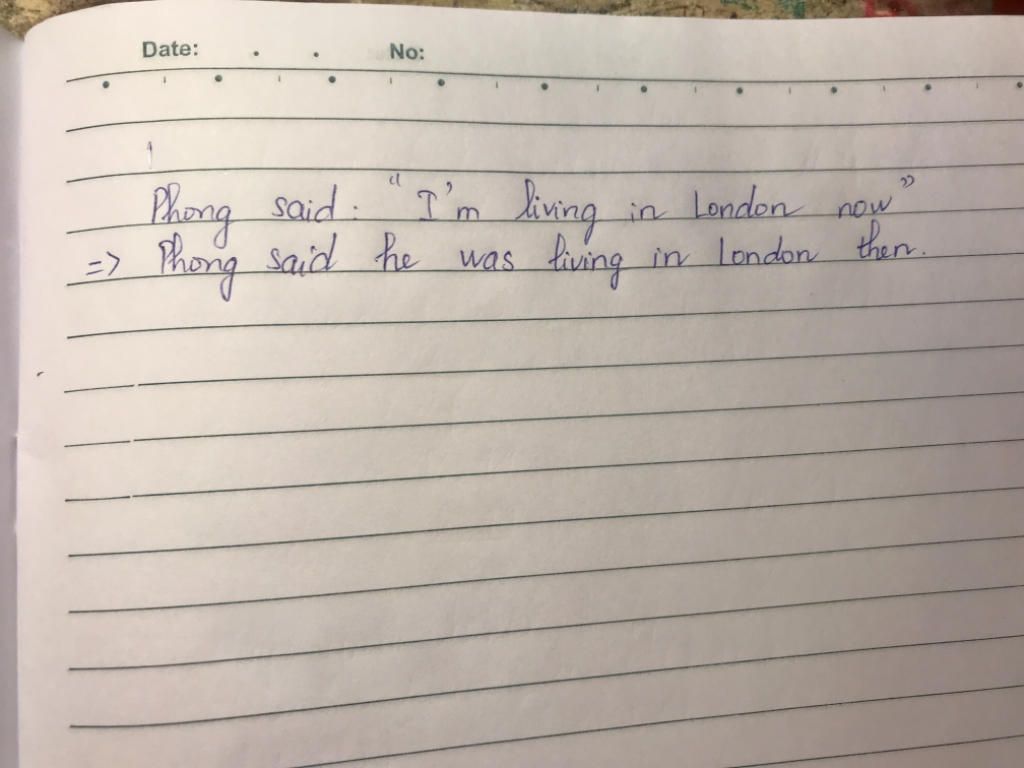 Date: . . No:
Phong said: "I'm living in London now"
=> Phong said he was living in London then.